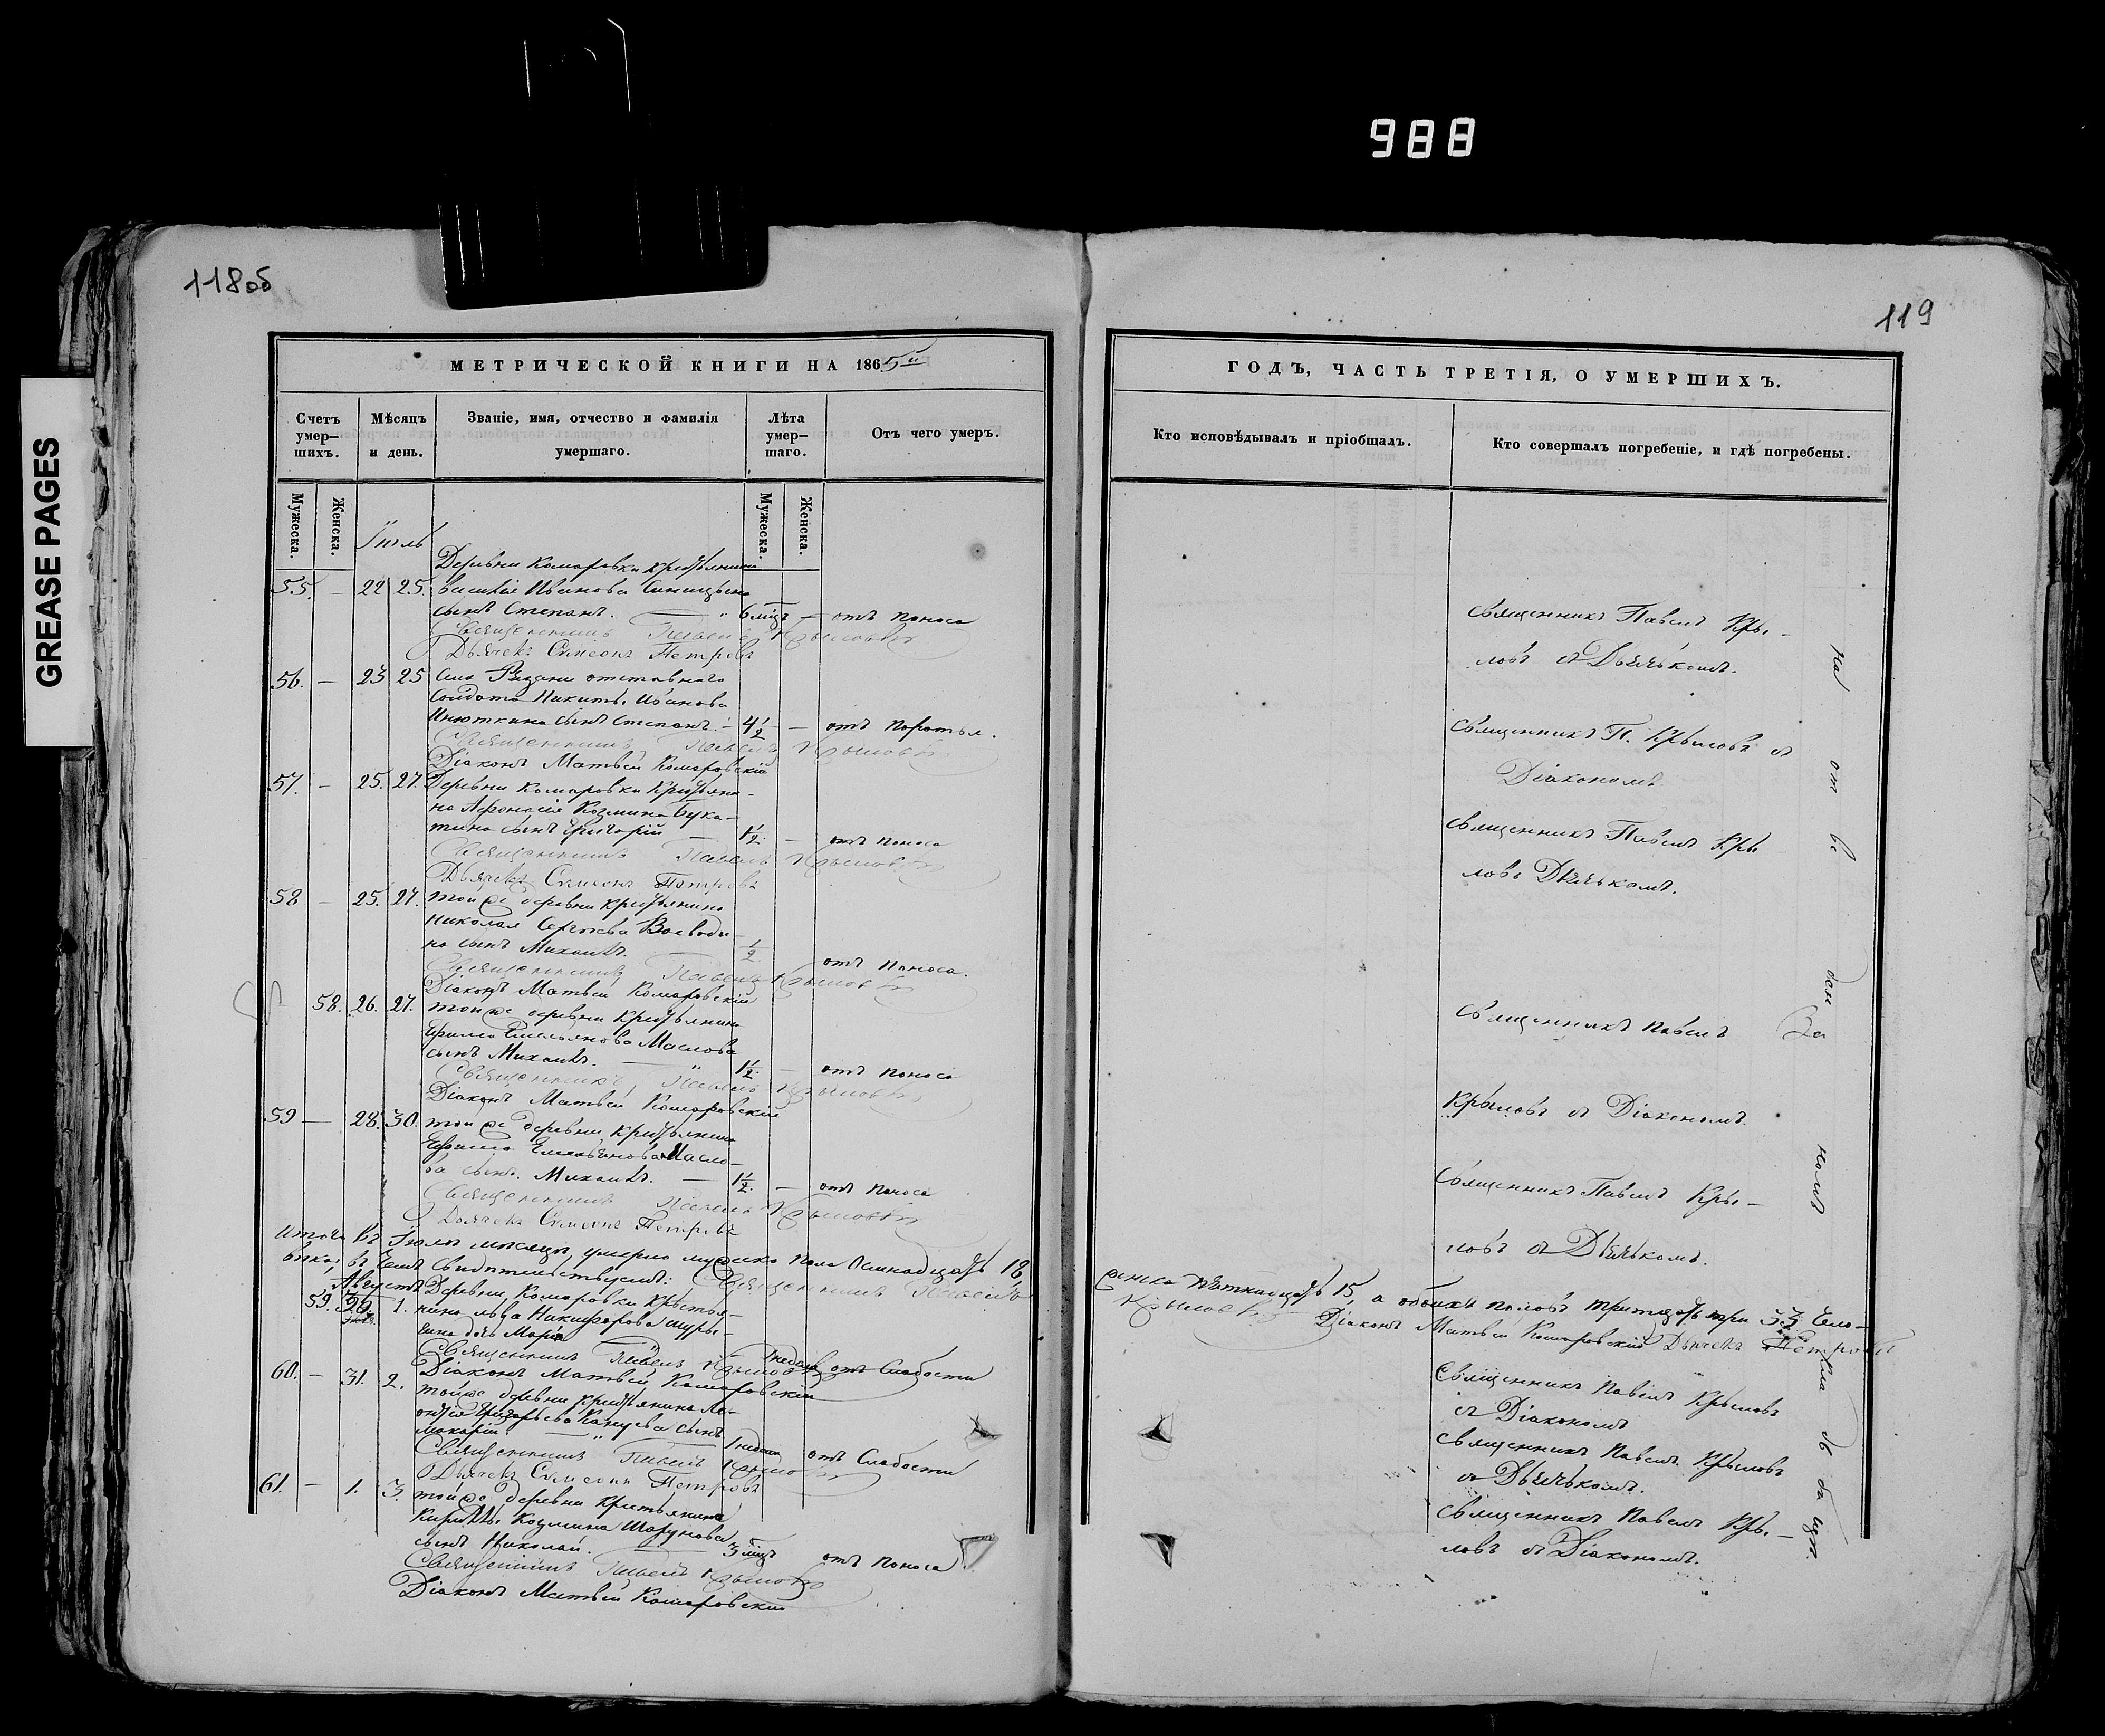 988
GREASE PAGES
118об
119
МЕТРИЧЕСКОЙ КНИГИ НА 1865й
Счетъ умер—шихъ.
Мѣсяцъ и день.
Званіе, имя, отчество и фамилія умершаго.
Лѣта умер—шаго.
Отъ чего умеръ.
Мужеска.
Женска.
Мужеска.
Женска.
Іюль
Деревни Комаровки крестьянина
55. — 22 25. Василія Иванова Синицына
сынъ Степанъ. — 6 мцъ — отъ поноса
Священникъ Павелъ Крыловъ
Дьячекъ Симеонъ Петровъ
56. — 23 25 Села Рязани отставнаго
Солдата Никиты Иванова
Инюткина сынъ Степанъ. — 4½ —
Священникъ Павелъ Крыловъ
Діаконъ Матвей Комаровскій
57. — 25. 27. Деревни Комаровки Крестьяни-
на Афонасія Козмина Бука-
тина сынъ Григорій — 1½. — отъ поноса
Священникъ Павелъ Крыловъ
Дьячекъ Симеонъ Петровъ
58 — 25. 27. тойже деревни крестьянина
Николая Сергѣева Воеводи-
на сынъ Михаилъ. ½. отъ поноса.
Священникъ Павелъ Крыловъ
Діаконъ Матвей Комаровскій
58. 26. 27. тойже деревни крестьянина
Ефима Емельянова Маслова
сынъ Михаилъ. — 1½. — отъ поноса
Священникъ Павелъ Крыловъ
Діаконъ Матвей Комаровскій
59 — 28. 30. тойже деревни крестьянина
Ефима Емельянова Масло-
ва сынъ Михаилъ. — 1½. — отъ поноса
Священникъ Павелъ Крыловъ
Дьячекъ Симеонъ Петровъ
Итого въ Іюлѣ мѣсяцѣ умерло мужеска пола осмнадцать 18,
вѣка, въ чемъ свидѣтельствуемъ: Священникъ Павелъ
Августъ Деревни Комаровки Крестья-
59. 30. 1. нина Льва Никифорова
дочь Марія 1 недели отъ слабости
Священникъ Павелъ Крыловъ
Діаконъ Матвей Комаровскій
60. — 31. 2. тойже деревни крестьянина Ле-
онтія Григорьева сынъ
Макарій. 1 недели отъ слабости
Священникъ Павелъ Крыловъ
Дьячекъ Симеонъ Петровъ
61. — 1. 3. тойже деревни крестьянина
Кирилы Козмина Шорунова
сынъ Николай. 3 мцъ отъ поноса
Священникъ Павелъ Крыловъ
Діаконъ Матвей Комаровскій
ГОДЪ, ЧАСТЬ ТРЕТІЯ, О УМЕРШИХЪ.
Кто исповѣдывалъ и пріобщалъ.
Кто совершалъ погребеніе, и гдѣ погребены.
Священникъ Павелъ Кры-
ловъ съ Дьячькомъ.
Священникъ П. Крыловъ съ
Діакономъ
Священникъ Павелъ Кры
ловъ Дьячькомъ.
Священникъ Павелъ
Крыловъ съ Діакономъ.
Священникъ Павелъ Кры-
ловъ съ Дьячькомъ.
женска пятнадцать 15, а обоихъ половъ тритцать три 33 чело-
Крыловъ Діаконъ Матвей Комаровскій Дьячекъ Петровъ
Священникъ Павелъ Крыловъ
съ Діакономъ
Священникъ Павелъ Крыловъ
съ Дьячькомъ.
Священникъ Павелъ Кры-
ловъ съ Діакономъ.
На от ве ден номъ кла дб ищѣ.